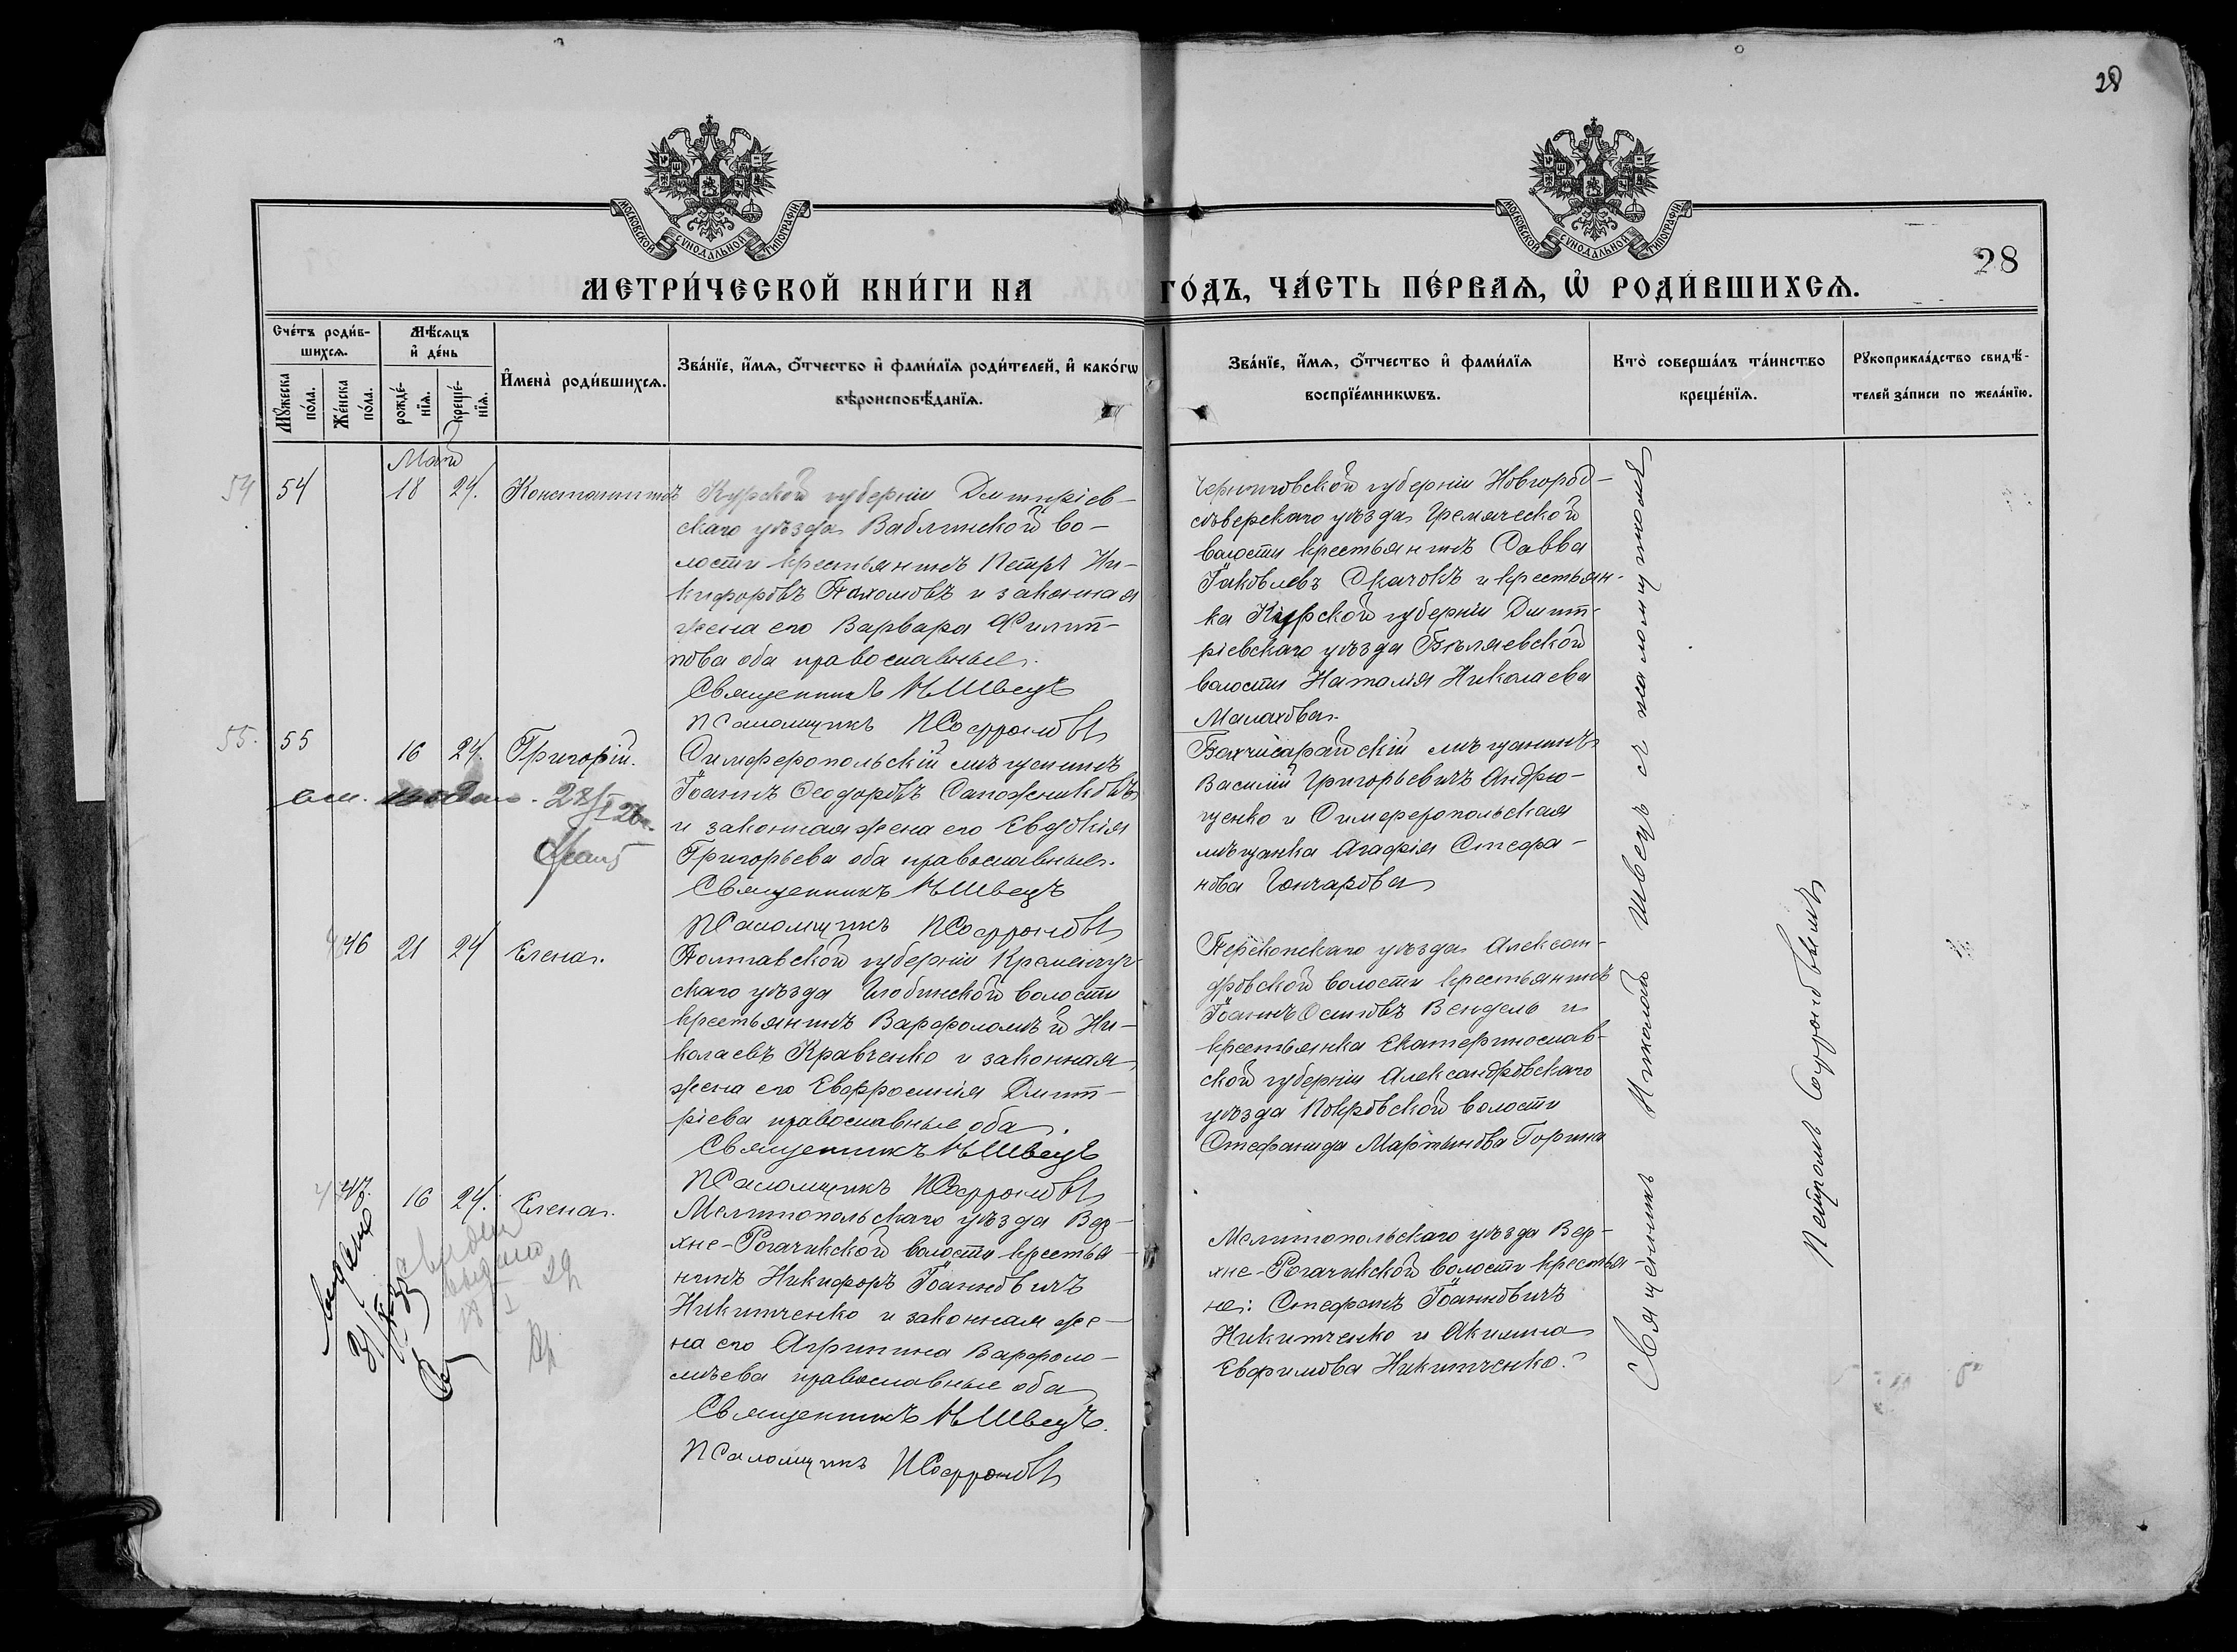 28
МОСКОВСКОЙ СѴНОДАЛЬНОЙ ТИПОГРАФІИ
МОСКОВСКОЙ СѴНОДАЛЬНОЙ ТИПОГРАФІИ
28
МЕТРИ́ЧЕСКОЙ КНИ́ГИ НА ГО́ДЪ, ЧА́СТЬ ПЕ́РВАѦ, Ѡ҆ РОДИ́ВШИХСѦ.
Сче́тъ роди́в-
шихсѧ.
Мꙋ́жеска
по́ла.
Же́нска
по́ла.
Мѣ́сѧцъ
и҆ де́нь
рожде́-
нїѧ.
креще́-
нїѧ.
И҆мена̀ роди́вшихсѧ.
Зва́нїе, и҆́мѧ, ѻ҆́тчество и҆ фами́лїѧ роди́телей, и҆ како́гѡ
вѣроисповѣ́данїѧ.
Зва́нїе, и҆́мѧ, ѻ҆́тчество и҆ фами́лїѧ
воспрїе́мникѡвъ.
Кто̀ соверша́лъ та́инство
креще́нїѧ.
Рꙋкоприкла́дство свидѣ́-
телей за́писи по жела́нїю.
Май
54 54 18 24. Константинъ
Курской губерніи Дмитріев-
скаго уѣзда Ваблинской во-
лости крестьянинъ Петръ Ни-
кифоровъ Пахомовъ и законная
жена его Варвара Филип-
пова оба православные.
Священникъ Н Швецъ
Псаломщикъ П Софроновъ
Черниговской губерніи Новгород-
сѣверскаго уѣзда Гремячской
волости крестьянинъ Савва
Іаковлевъ Скачокъ и крестьян-
ка Курской губерніи Дмит-
ріевскаго уѣзда Бѣляевской
волости Наталія Николаева
Малахова.
55. 55 16 24. Григорій.
Симферопольскій мѣщанинъ
Іоаннъ Ѳеодоровъ Сапожниковъ
и законная жена его Евдокія
Григорьева оба православные.
Священникъ Н Швецъ
Псаломщикъ П Софроновъ
Бахчисарайскій мѣщанинъ
Василій Григорьевичъ Андрю-
щенко и Симферопольская
мѣщанка Агафія Стефа-
нова Гончарова
46 21 24 Елена.
Полтавской губерніи Кременчуг-
скаго уѣзда Глобинской волости
крестьянинъ Варфоломѣй Ни-
колаевъ Кравченко и законная
жена его Евфросинія Дмит-
ріева православные оба.
Священникъ Н Швецъ
Псаломщикъ П Софроновъ
Перекопскаго уѣзда Алексан-
дровской волости крестьянинъ
Іоаннъ Осиповъ Вендель и
крестьянка Екатеринослав-
ской губерніи Александровскаго
уѣзда Покровской волости
Стефанида Мартынова Горина
47. 16 24. Елена.
Мелитопольскаго уѣзда Вер-
хне-Рогачикской волости крестья-
нинъ Никифоръ Іоанновичъ
Никитченко и законная же-
на его Агрипина Варфоло-
мѣева православные оба
Священникъ Н Швецъ.
Псаломщикъ П Софроновъ
Мелитопольскаго уѣзда Вер-
хне-Рогачикской волости крестья-
не: Стефанъ Іоанновичъ
Никитченко и Акилина
Евфимова Никитченко.
Священникъ Николай Швецъ съ псаломщикомъ
Петромъ Софроновымъ